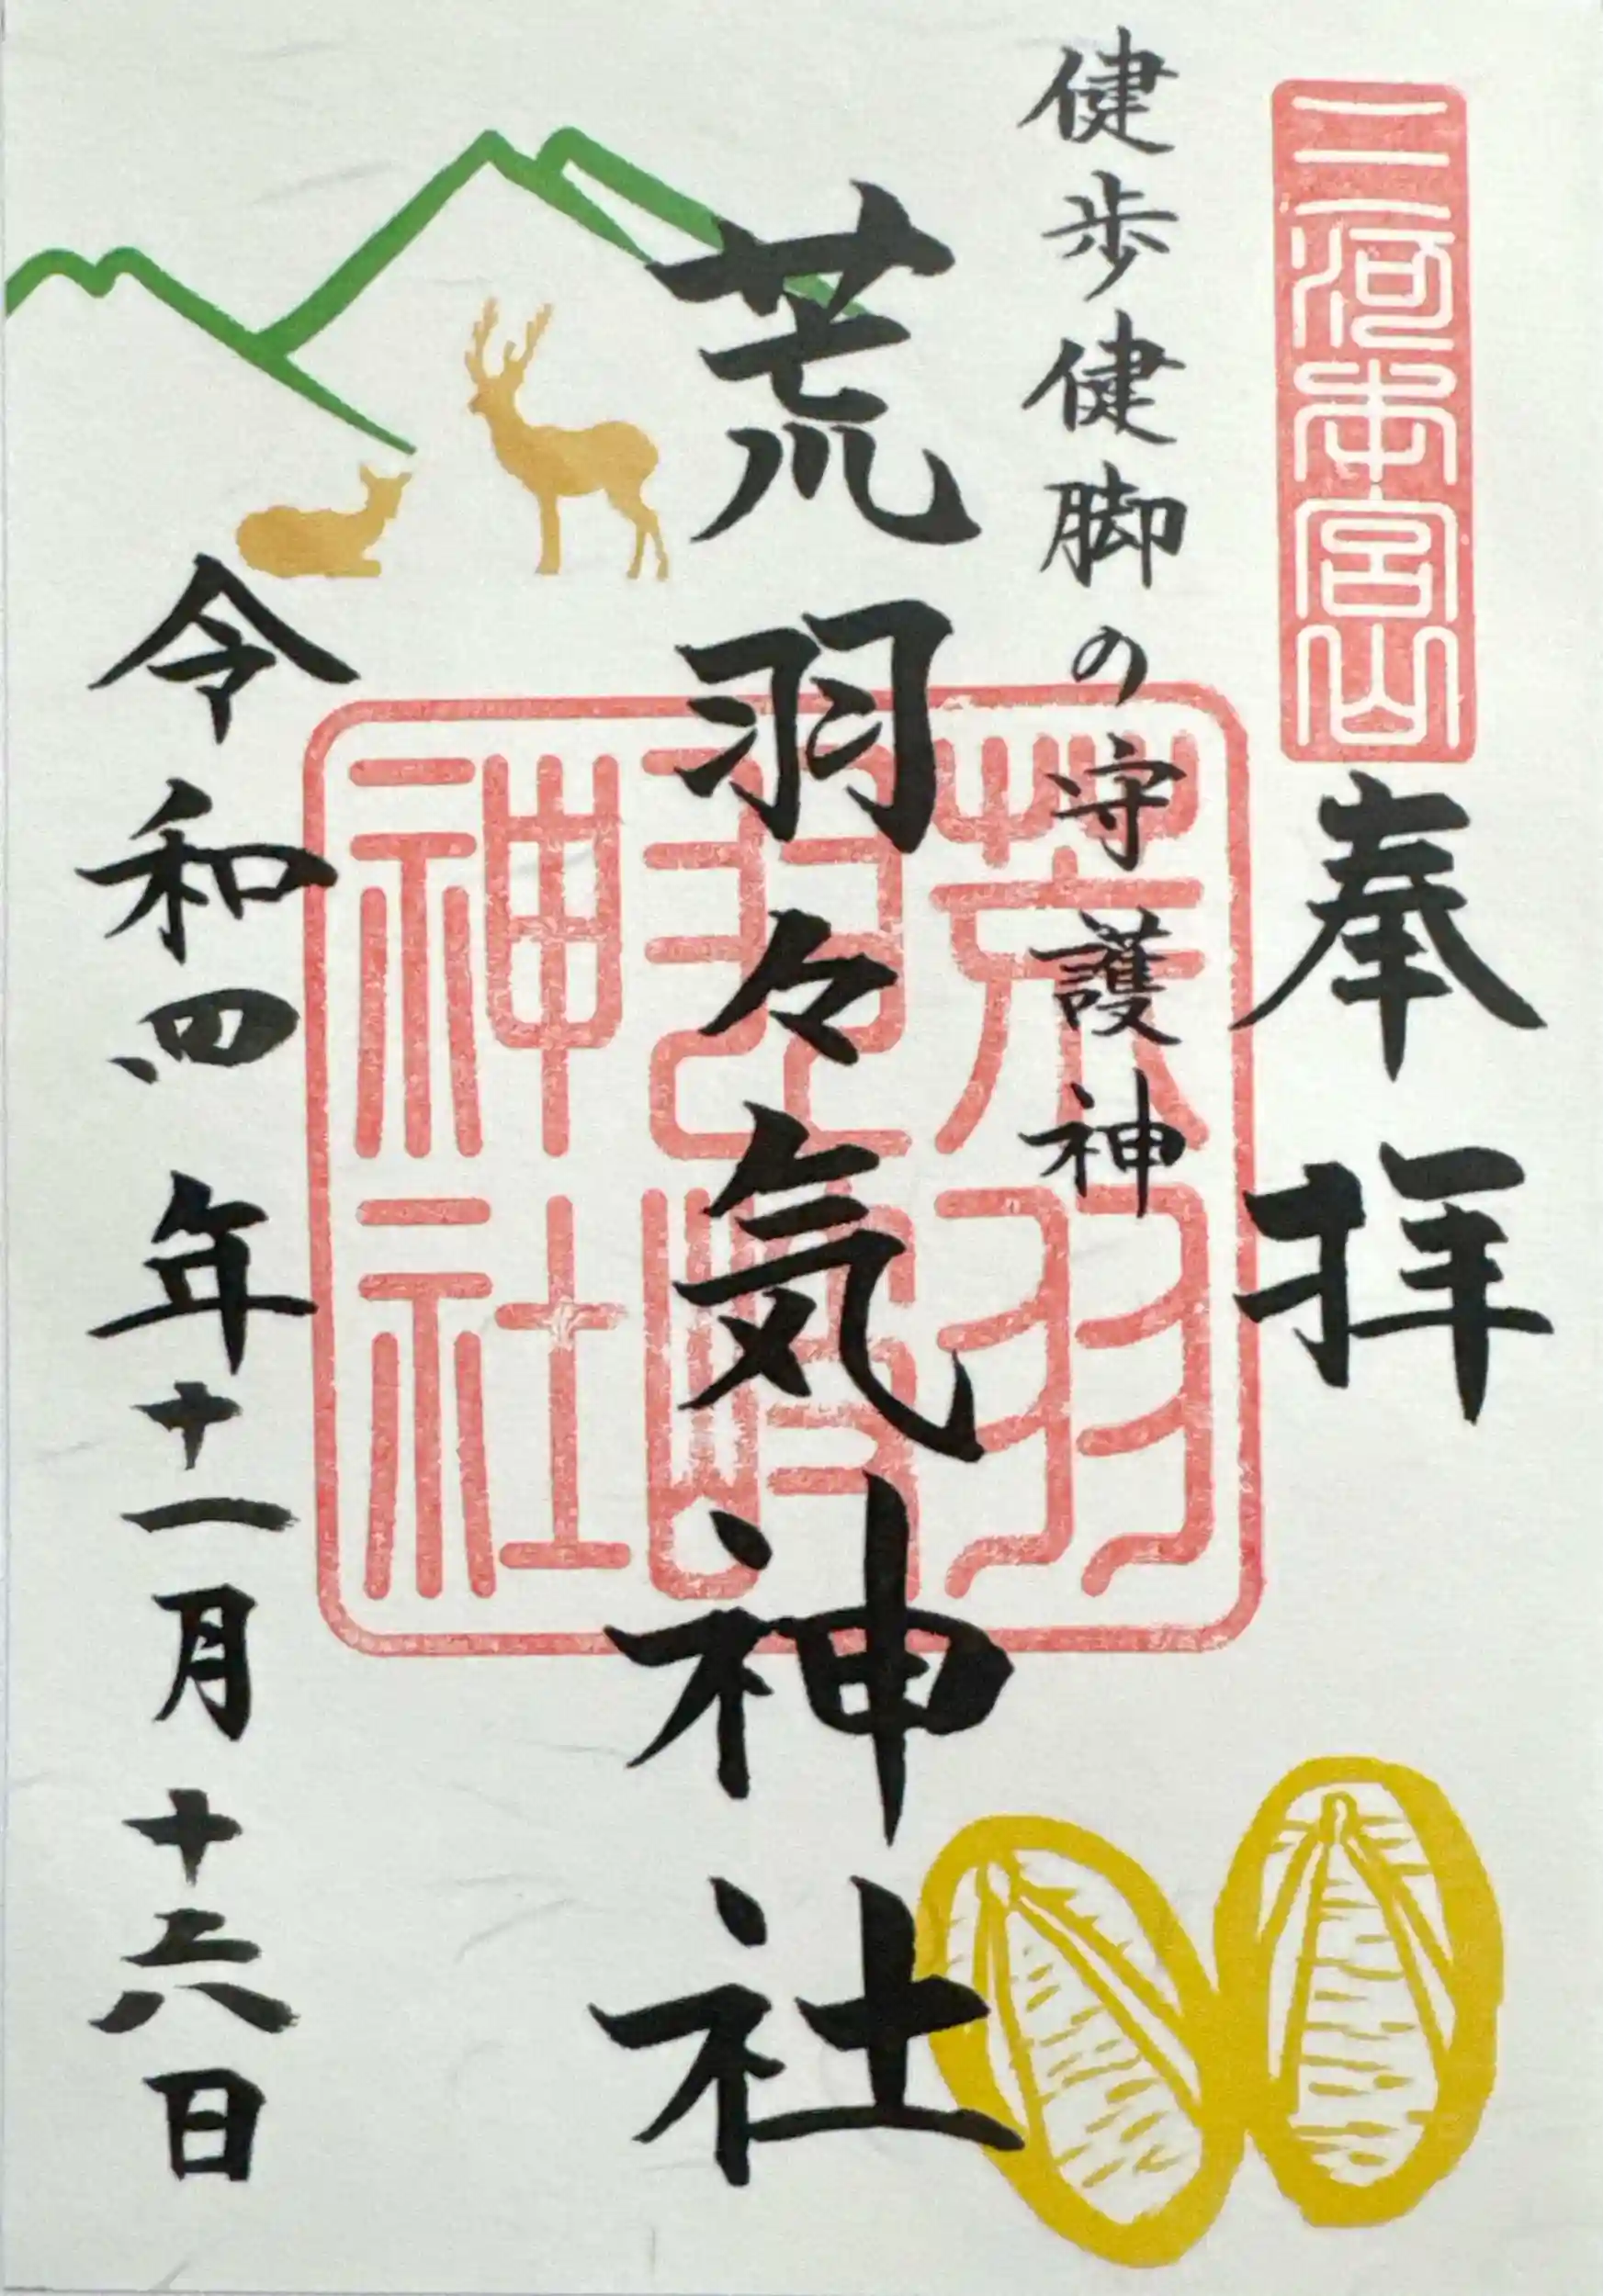 三河本宮山
奉拝
健歩健脚の守護神
荒羽々気神社
荒羽
神社
令和四年十一月十六日